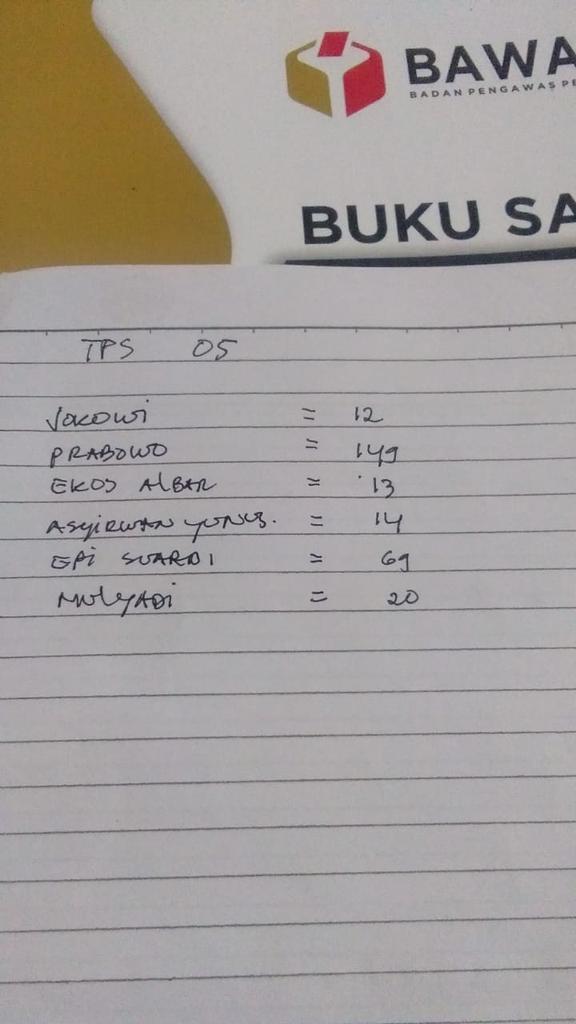 BAWA
BADAN PENGAWAS PE
BUKU SA
TPS 05
Jokowi = 12
PRABOWO = 149
EKOS ALBAR = 13
ASYIRWAN YUNUS. = 14
EPI SUARDI = 69
MULYADI = 20